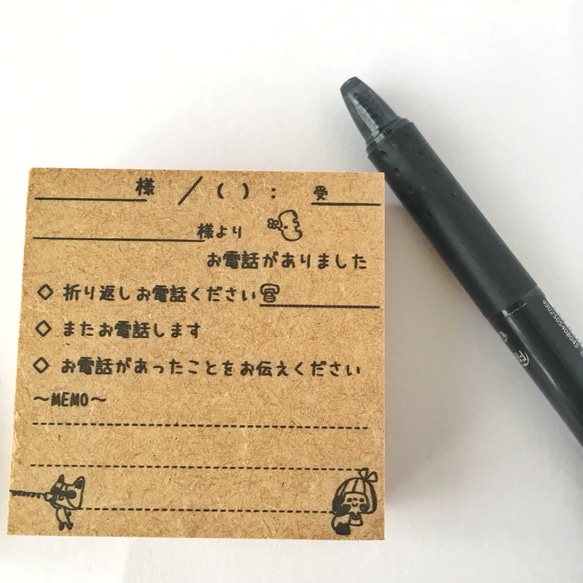 様 ／( ) : 受
様より
お電話がありました
◇ 折り返しお電話ください☎
◇ またお電話します
◇ お電話があったことをお伝えください
～MEMO～